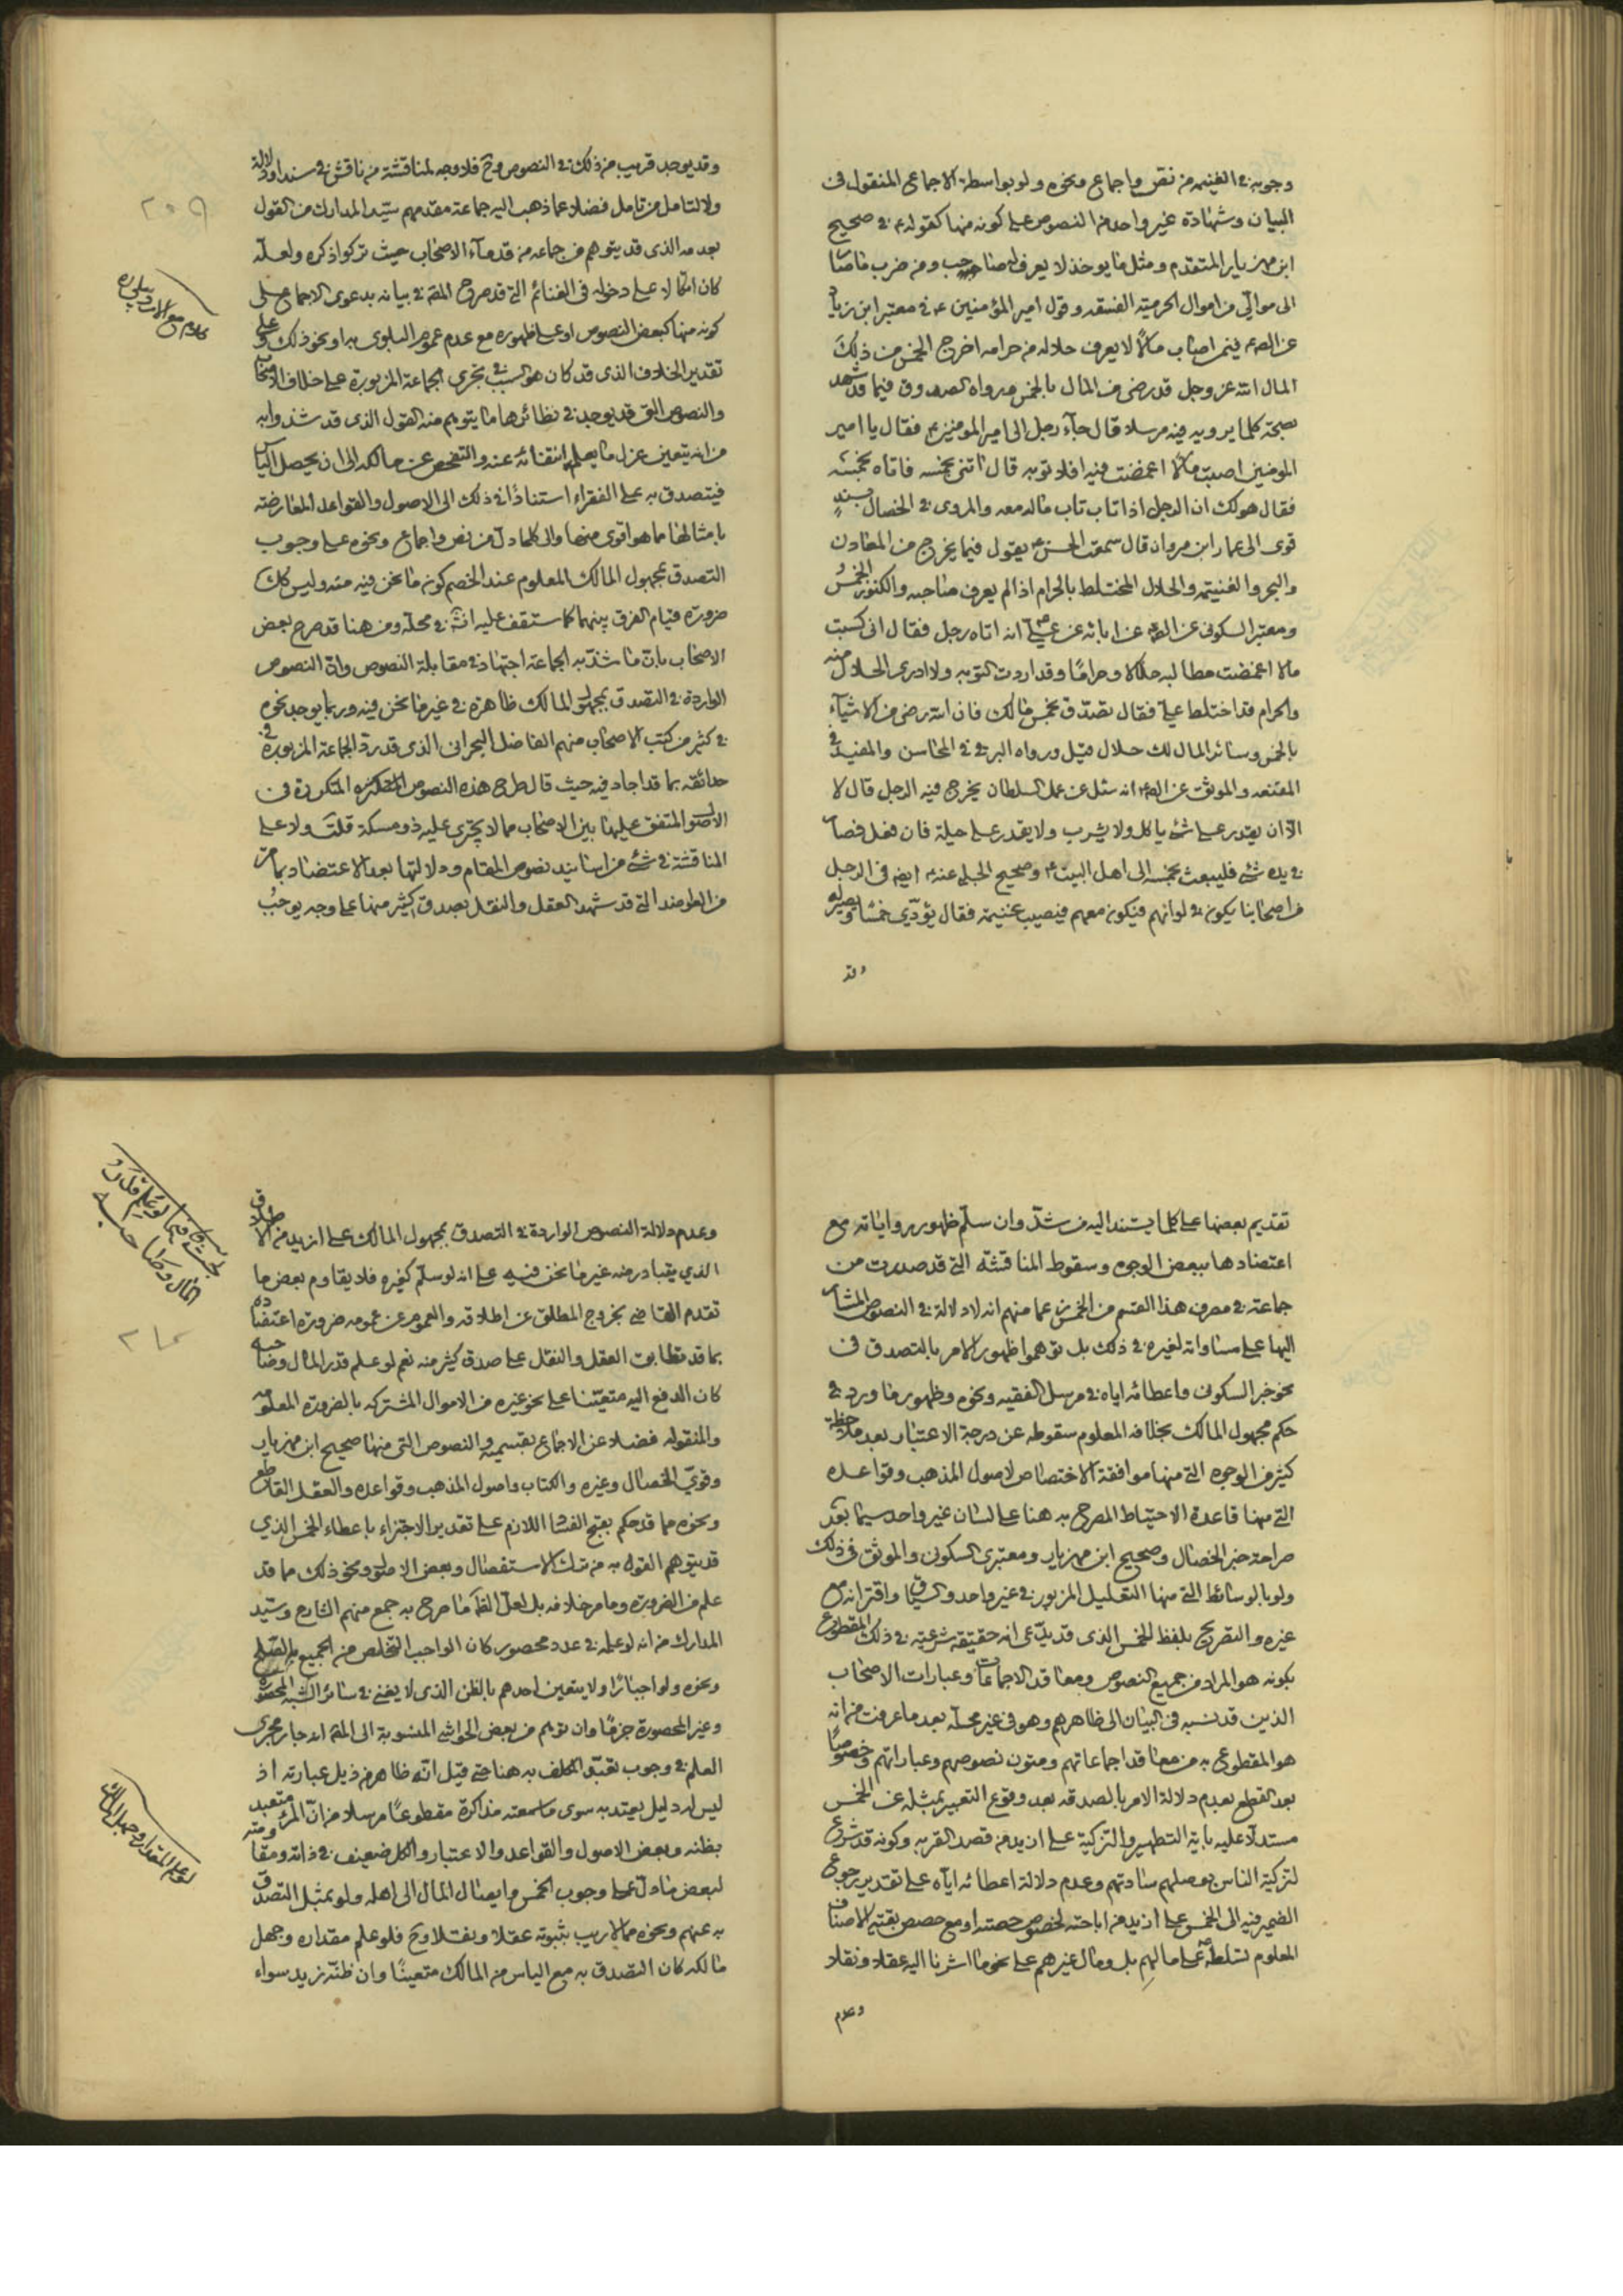 وجوبه في الغنيمه من نص واجماع ونحوه ولو بواسطة الاجماع المنقول في
البيان وشهادة غير واحد من النصوص على كونه منها كقوله ع في صحيح
ابن مهزيار المتقدم ومثل ما يوخذ لا يعرف له صاحب ومن ضرب ما صار
الى موالي من اموال الخرمية الفسقه وقول امير المؤمنين ع في معتبر ابن زياد
عن الصم فيمن اصاب مالا لا يعرف حلاله من حرامه اخرج الخمس من ذلك
المال الله عز وجل قد رضى من المال بالخمس ورواه الصدوق فيما قد شهد
بصحة كلما يرويه فيه مرسلا قال جاء رجل الى امير المومنين ع فقال يا امير
المومنين اصبت مالا اغمضت فيه افلا توبه قال ائتنى بخمسه فاتاه بخمسه
فقال هو لك ان الرجل اذا تاب تاب ماله معه والمروى في الخصال بسند
قوى الى عمار ابن مروان قال سمعت الحسن ع يقول فيما يخرج من المعادن
والبحر والغنيمه والحلال المختلط بالحرام اذا لم يعرف صاحبه والكنوز الخمس
ومعتبر السكونى عن الصم عن ابائه عن على ع انه اتاه رجل فقال انى كسبت
مالا اغمضت مطالبه حلالا وحراما وقد اردت التوبه ولا ادرى الحلال منه
والحرام قد اختلط على فقال تصدق بخمس مالك فان الله رضى من الاشياء
بالخمس وسائر المال لك حلال قيل ورواه البرقى في المحاسن والمفيد في
المقنعه والموثق عن الصم انه سئل عن عمل السلطان يخرج فيه الرجل قال لا
الا ان يقدر على شئ ياكل ولا يشرب ولا يقدر على حيلة فان فعل فصار
في يده شئ فليبعث بخمسه الى اهل البيت ع وصحيح الحلبى عنه ع ايضا في الرجل
من اصحابنا يكون في لوائهم فيكون معهم فيصيب غنيمة فقال يؤدى خمسا ويطيب له
وقد
وقد يوجد قريب من ذلك في النصوص وح فلا وجه لمناقشة من ناقش في سند او دلالة
ولا لتامل من تامل فضلا عما ذهب اليه جماعة مقدمهم سيد المدارك من القول
بعدمه الذى قد يتوهم من جماعه من قدماء الاصحاب حيث تركوا ذكره ولعله
كان اتكالا على دخوله في الغنائم التى قد صرح المقم في بيانه بدعوى الاجماع على
كونه منها كبعض النصوص او على ظهوره مع عدم عموم البلوى به او نحو ذلك وعلى
تقدير الخلاف الذى قد كان هو السبب في تجرى الجماعة المزبورة على خلاف الاصحاب
والنصوص التى قد يوجد في نظائرها ما يتوهم منه القول الذى قد شذوا به
من انه يتعين عزل ما يعلم انتفائه عنه والتفحص عن مالكه الى ان يحصل الياس
فيتصدق به على الفقراء استنادا في ذلك الى الاصول والقواعد المعارضته
بامثالها مما هو اقوى منها والى كلما دل من نص واجماع ونحوه على وجوب
التصدق بمجهول المالك المعلوم عند الخصم كون ما نحن فيه منه وليس كك
ضرورة قيام الفرق بينهما كما ستقف عليه انشا في محله ومن هنا قد صرح بعض
الاصحاب بان ما شذ به الجماعة اجتهاد في مقابلة النصوص وان النصوص
الواردة في التصدق بمجهول المالك ظاهرة في غير ما نحن فيه وربما يوجد نحوه
في كثير من كتب الاصحاب منهم الفاضل البحرانى الذى قد رد الجماعة المزبورة في
حدائقه بما قد اجاد فيه حيث قال طرح هذه النصوص المتكررة في
الاصول المتفق عليها بين الاصحاب مما لا يجترى عليه ذو مسكة قلت ولا على
المناقشة في شئ من اسانيد نصوص المقام ودلالتها بعد الاعتضاد بما مر
من الطوا مند التى قد شهد العقل والنقل بصدق كثير منها على وجه يوجب
٢٠٩
كلام مع
تقديم بعضها على كلما يستند اليه من شذ وان سلم ظهوره واياته مع
اعتضادها ببعض الوجوه وسقوط المناقشة التى قد صدرت من
جماعة في مصرف هذا القسم من الخمس زعما منهم انه لا دلالة في النصوص المشار
اليها على مساواته لغيره في ذلك بل توهموا ظهور الامر بالتصدق في
نحو خبر السكونى واعطائه اياه في مرسل الفقيه ونحوه وظهور ما ورد في
حكم مجهول المالك بخلافه المعلوم سقوطه عن درجة الاعتبار بعد ملاحظة
كثير من الوجوه التى منها موافقة الاختصاص لاصول المذهب وقواعده
التى منها قاعدة الاحتياط المصرح به هنا على لسان غير واحد سيما بعد
صراحة خبر الخصال وصحيح ابن مهزيار ومعتبرى السكونى والموثق في ذلك
ولو بالوسائط التى منها التعليل المزبور في غير واحد والسياق واقترانه مع
غيره والتصريح بلفظ الخمس الذى قد يدعى انه حقيقة شرعية في ذلك المقطوع
بكونه هو المراد من جميع النصوص ومعاقد الاجماعات وعبارات الاصحاب
الذين قد نسبه في البيان الى ظاهرهم وهو في غير محله بعد ما عرفت من انه
هو المقطوع به من معاقد اجماعاتهم ومتون نصوصهم وعباراتهم وخصوصا
بعد القطع بعدم دلالة الامر بالصدقه بعد وقوع التعبير بمثله عن الخمس
مستدلا عليه باية التطهير والتزكية على ازيد من قصد القربه وكونه قد شرع
لتزكية الناس بوصلهم ساداتهم وعدم دلالة اعطائه اياه على تقدير رجوع
الضمير فيه الى الخمس على ازيد من اباحته لخصوص حصته او مع حصص بقية الاصناف
المعلوم تسلطه ع على مالهم بل ومال غيرهم على نحو ما اشرنا اليه عقلا ونقلا
وعدم
وعدم دلالة النصوص الواردة في التصدق بمجهول المالك على ازيد من الاطلاق
الذي يتبادر منه غير ما نحن فيه على انه لو سلم كغيره فلا يقاوم بعض ما
تقدم القاضى بخروج المطلق عن اطلاقه والعموم عن عمومه ضرورة اعتضاده
بما قد تطابق العقل والنقل على صدق كثير منه نعم لو علم قدر المال وصاحبه
كان الدفع اليه متعينا على نحو غيره من الاموال المشتركه بالضرورة المعلومه
والمنقوله فضلا عن الاجماع بقسميه والنصوص التى منها صحيح ابن مهزيار
وقوي الخصال وغيره والكتاب واصول المذهب وقواعده والعقل القاطع
ونحوه مما قد حكم بقبح الفسا اللازم على تقدير الاجتزاء باعطاء الخمس الذي
قد يتوهم القول به من ترك الاستفصال وبعض الاطلاق ونحو ذلك مما قد
علم من الضرورة وما مر خلافه بل لعل الظم ما صرح به جمع منهم الشارح وسيد
المدارك من انه لو علمه في عدد محصور كان الواجب التخلص من الجميع ولو بالصلح
ونحوه ولو اجبارا ولا يتعين احدهم بالظن الذى لا يغنى في سائر الشبه المحصورة
وغير المحصورة جزما وان توهم من بعض الحواشى المنسوبة الى المقم انه جار مجرى
العلم في وجوب تعبد المكلف به هنا حتى قيل انه ظاهر من ذيل عبارته اذ
ليس له دليل يعتد به سوى ما سمعته مذاكرة مقطوعا مرسلا من ان المرء متعبد
بظنه وبعض الاصول والقواعد والاعتبار والكل ضعيف في ذاته ومقاومته
لبعض ما دل على وجوب الخمس وايصال المال الى اهله ولو بمثل التصدق
به عنهم ونحوه مما لا ريب بثبوته عقلا ونقلا وح فلو علم مقداره وجهل
مالكه كان التصدق به مع الياس من المالك متعينا وان ظنه زيد سواء
بحث فيما لو علم قدر
المال وصاحبه
لو علم المقدار وجهل المالك